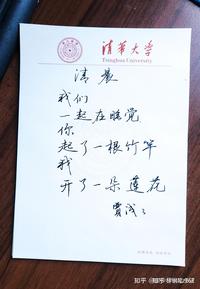 清华大学
Tsinghua University
清晨
我们
一起在睡觉
你
起了一根竹竿
我
开了一朵莲花
贾浅浅